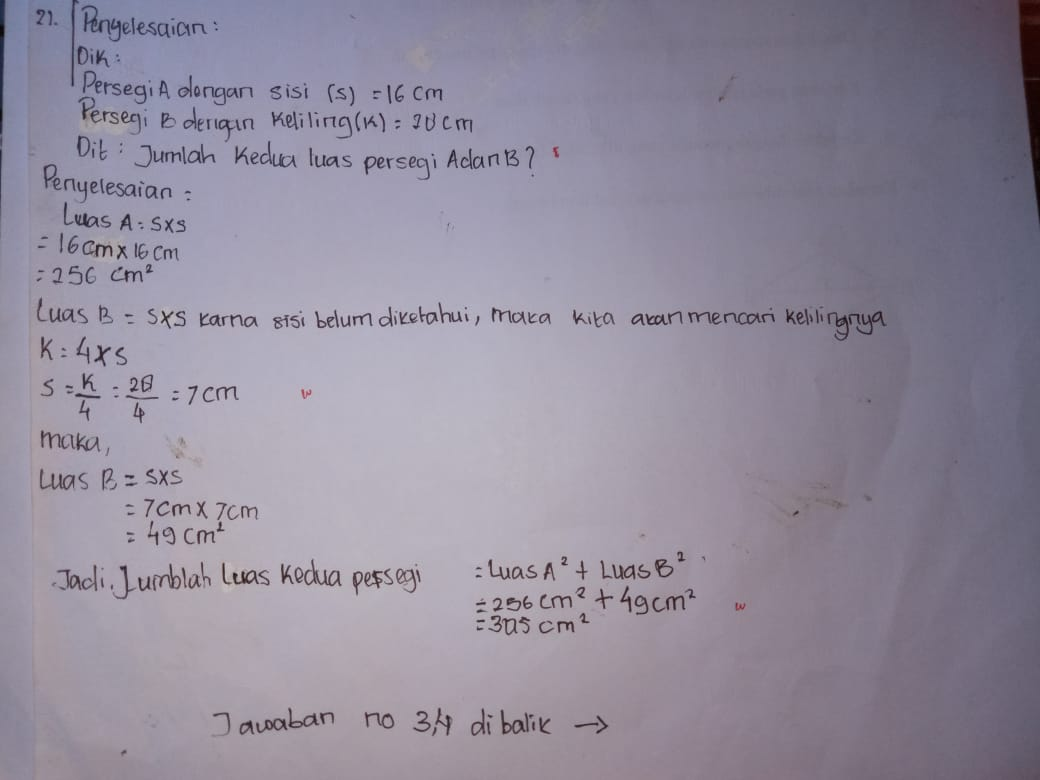 21. Penyelesaian:
Dik:
Persegi A dengan sisi (s) = 16 cm
Persegi B dengan Keliling (K) = 28 cm
Dit: Jumlah Kedua luas persegi A dan B?
Penyelesaian:
Luas A: sxs
= 16 cm x 16 cm
= 256 cm²
Luas B = sxs karna sisi belum diketahui, maka kita akan mencari kelilingnya
K: 4xs
s = K/4 = 28/4 = 7 cm
maka,
Luas B = sxs
= 7cm x 7cm
= 49 cm²
Jadi. Jumblah luas kedua persegi = Luas A² + Luas B²
= 256 cm² + 49 cm²
= 305 cm²
Jawaban no 3,4 di balik →